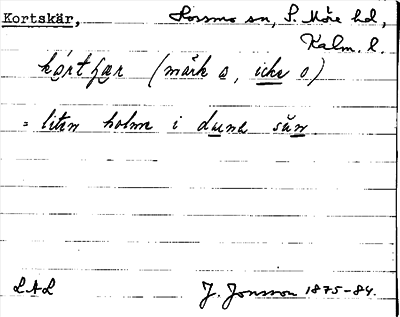 Kortskär, Hossmo sn, S. Möre hd,
Kalm. l.
kórtʃær (märk o, icke o)
= liten holme i duns sån
LAL J. Jonsson 1875-84.